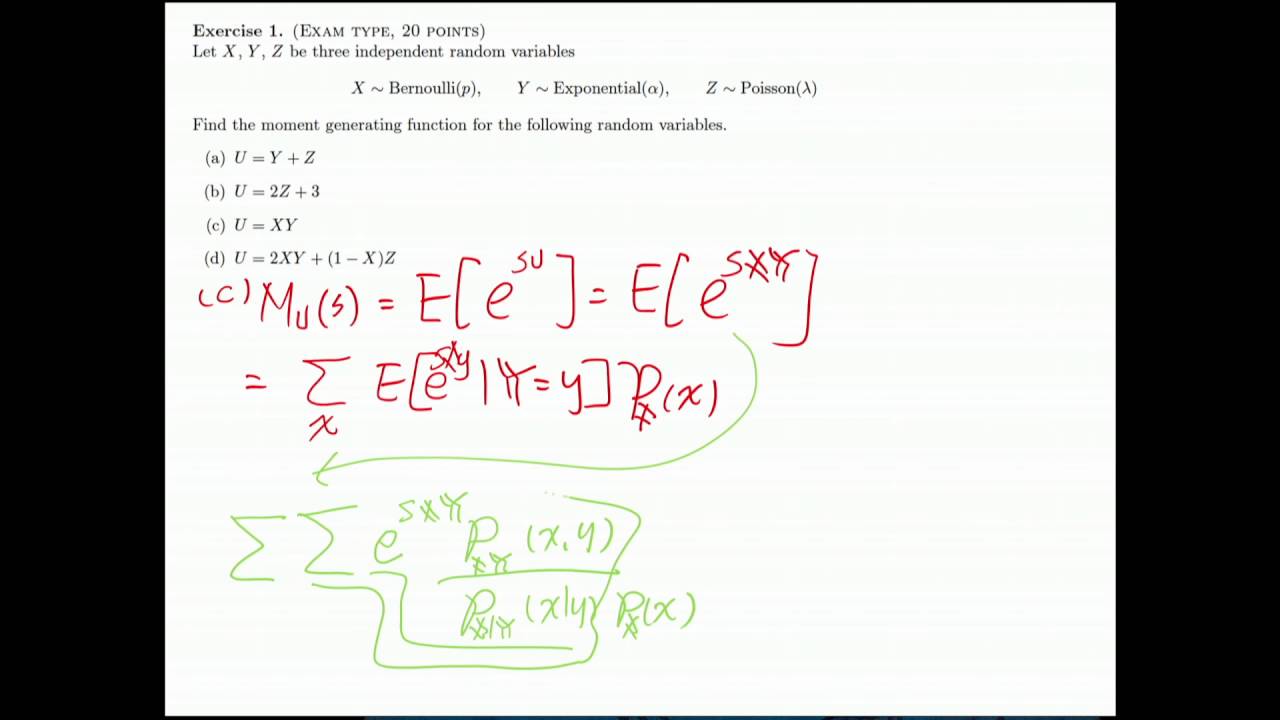 Exercise 1. (EXAM TYPE, 20 POINTS)
Let X, Y, Z be three independent random variables
X ∼ Bernoulli(p), Y ∼ Exponential(α), Z ∼ Poisson(λ)
Find the moment generating function for the following random variables.
(a) U = Y + Z
(b) U = 2Z + 3
(c) U = XY
(d) U = 2XY + (1 − X)Z
(c) M_U(s) = E[e^{sU}] = E[e^{sXY}]
= Σ_x E[e^{sXy} | Y = y] P_X(x)
Σ Σ e^{sXY} P_{XY}(x,y)
P_{X|Y}(x|y) P_X(x)